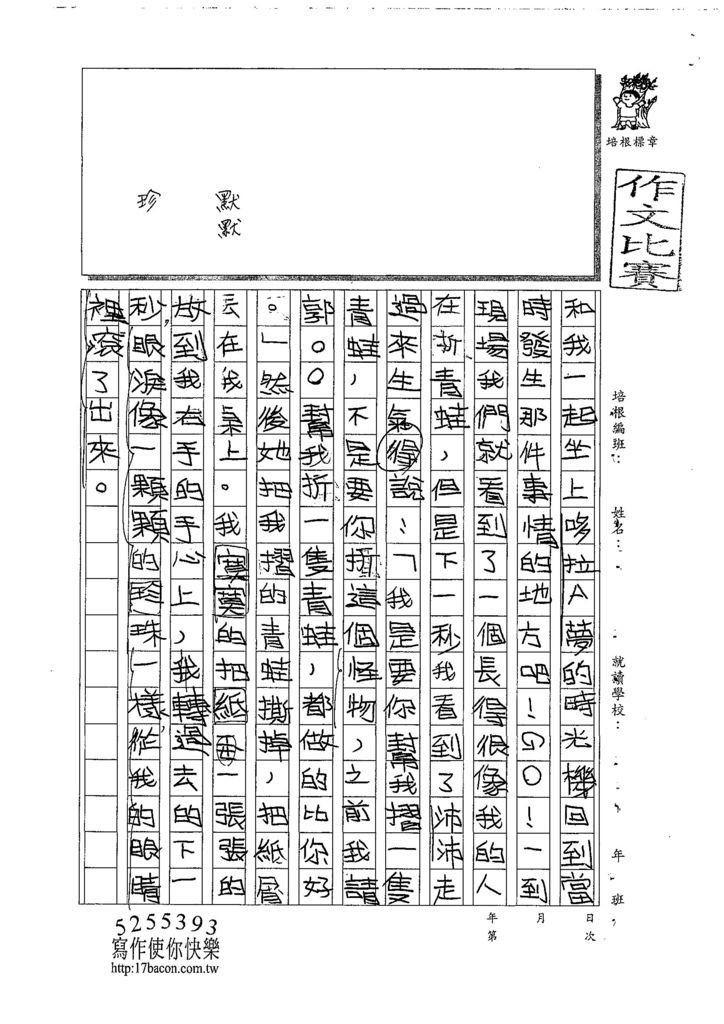 培根標章
作文比賽
默默
珍
培根編班：
姓名：
就讀學校：
年 班
日
次
月
年
第
和我一起坐上哆拉A夢的時光機回到當
時發生那件事情的地方吧！GO！一到
現場我們就看到了一個長得很像我的人
在折青蛙，但是下一秒我看到了沛沛走
過來生氣得說：「我是要你幫我摺一隻
青蛙，不是要你摺這個怪物，之前我請
郭○○幫我折一隻青蛙，都做的比你好
。」然後她把我摺的青蛙撕掉，把紙屑
丟在我桌上。我 的把紙 一張張的
放到我右手的手心上，我轉過去的下一
秒，眼淚像一顆顆的珍珠一樣，從我的眼睛
裡滾了出來。
5255393
寫作使你快樂
http:17bacon.com.tw